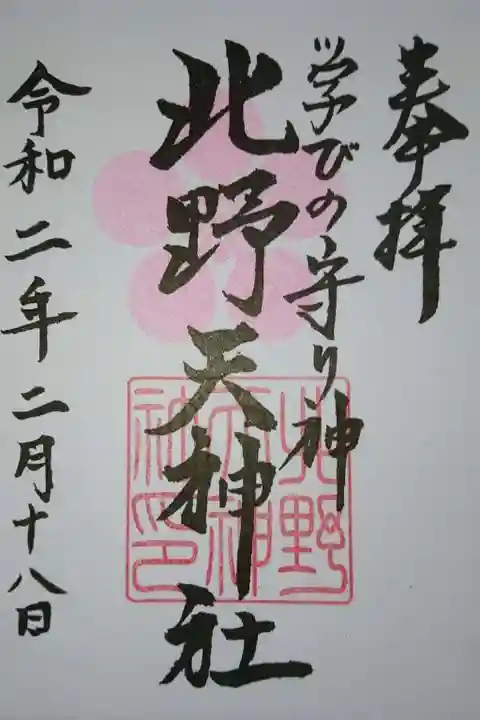 奉拝
学びの守り神
北野天神社
令和二年二月十八日
北野
天神
社印